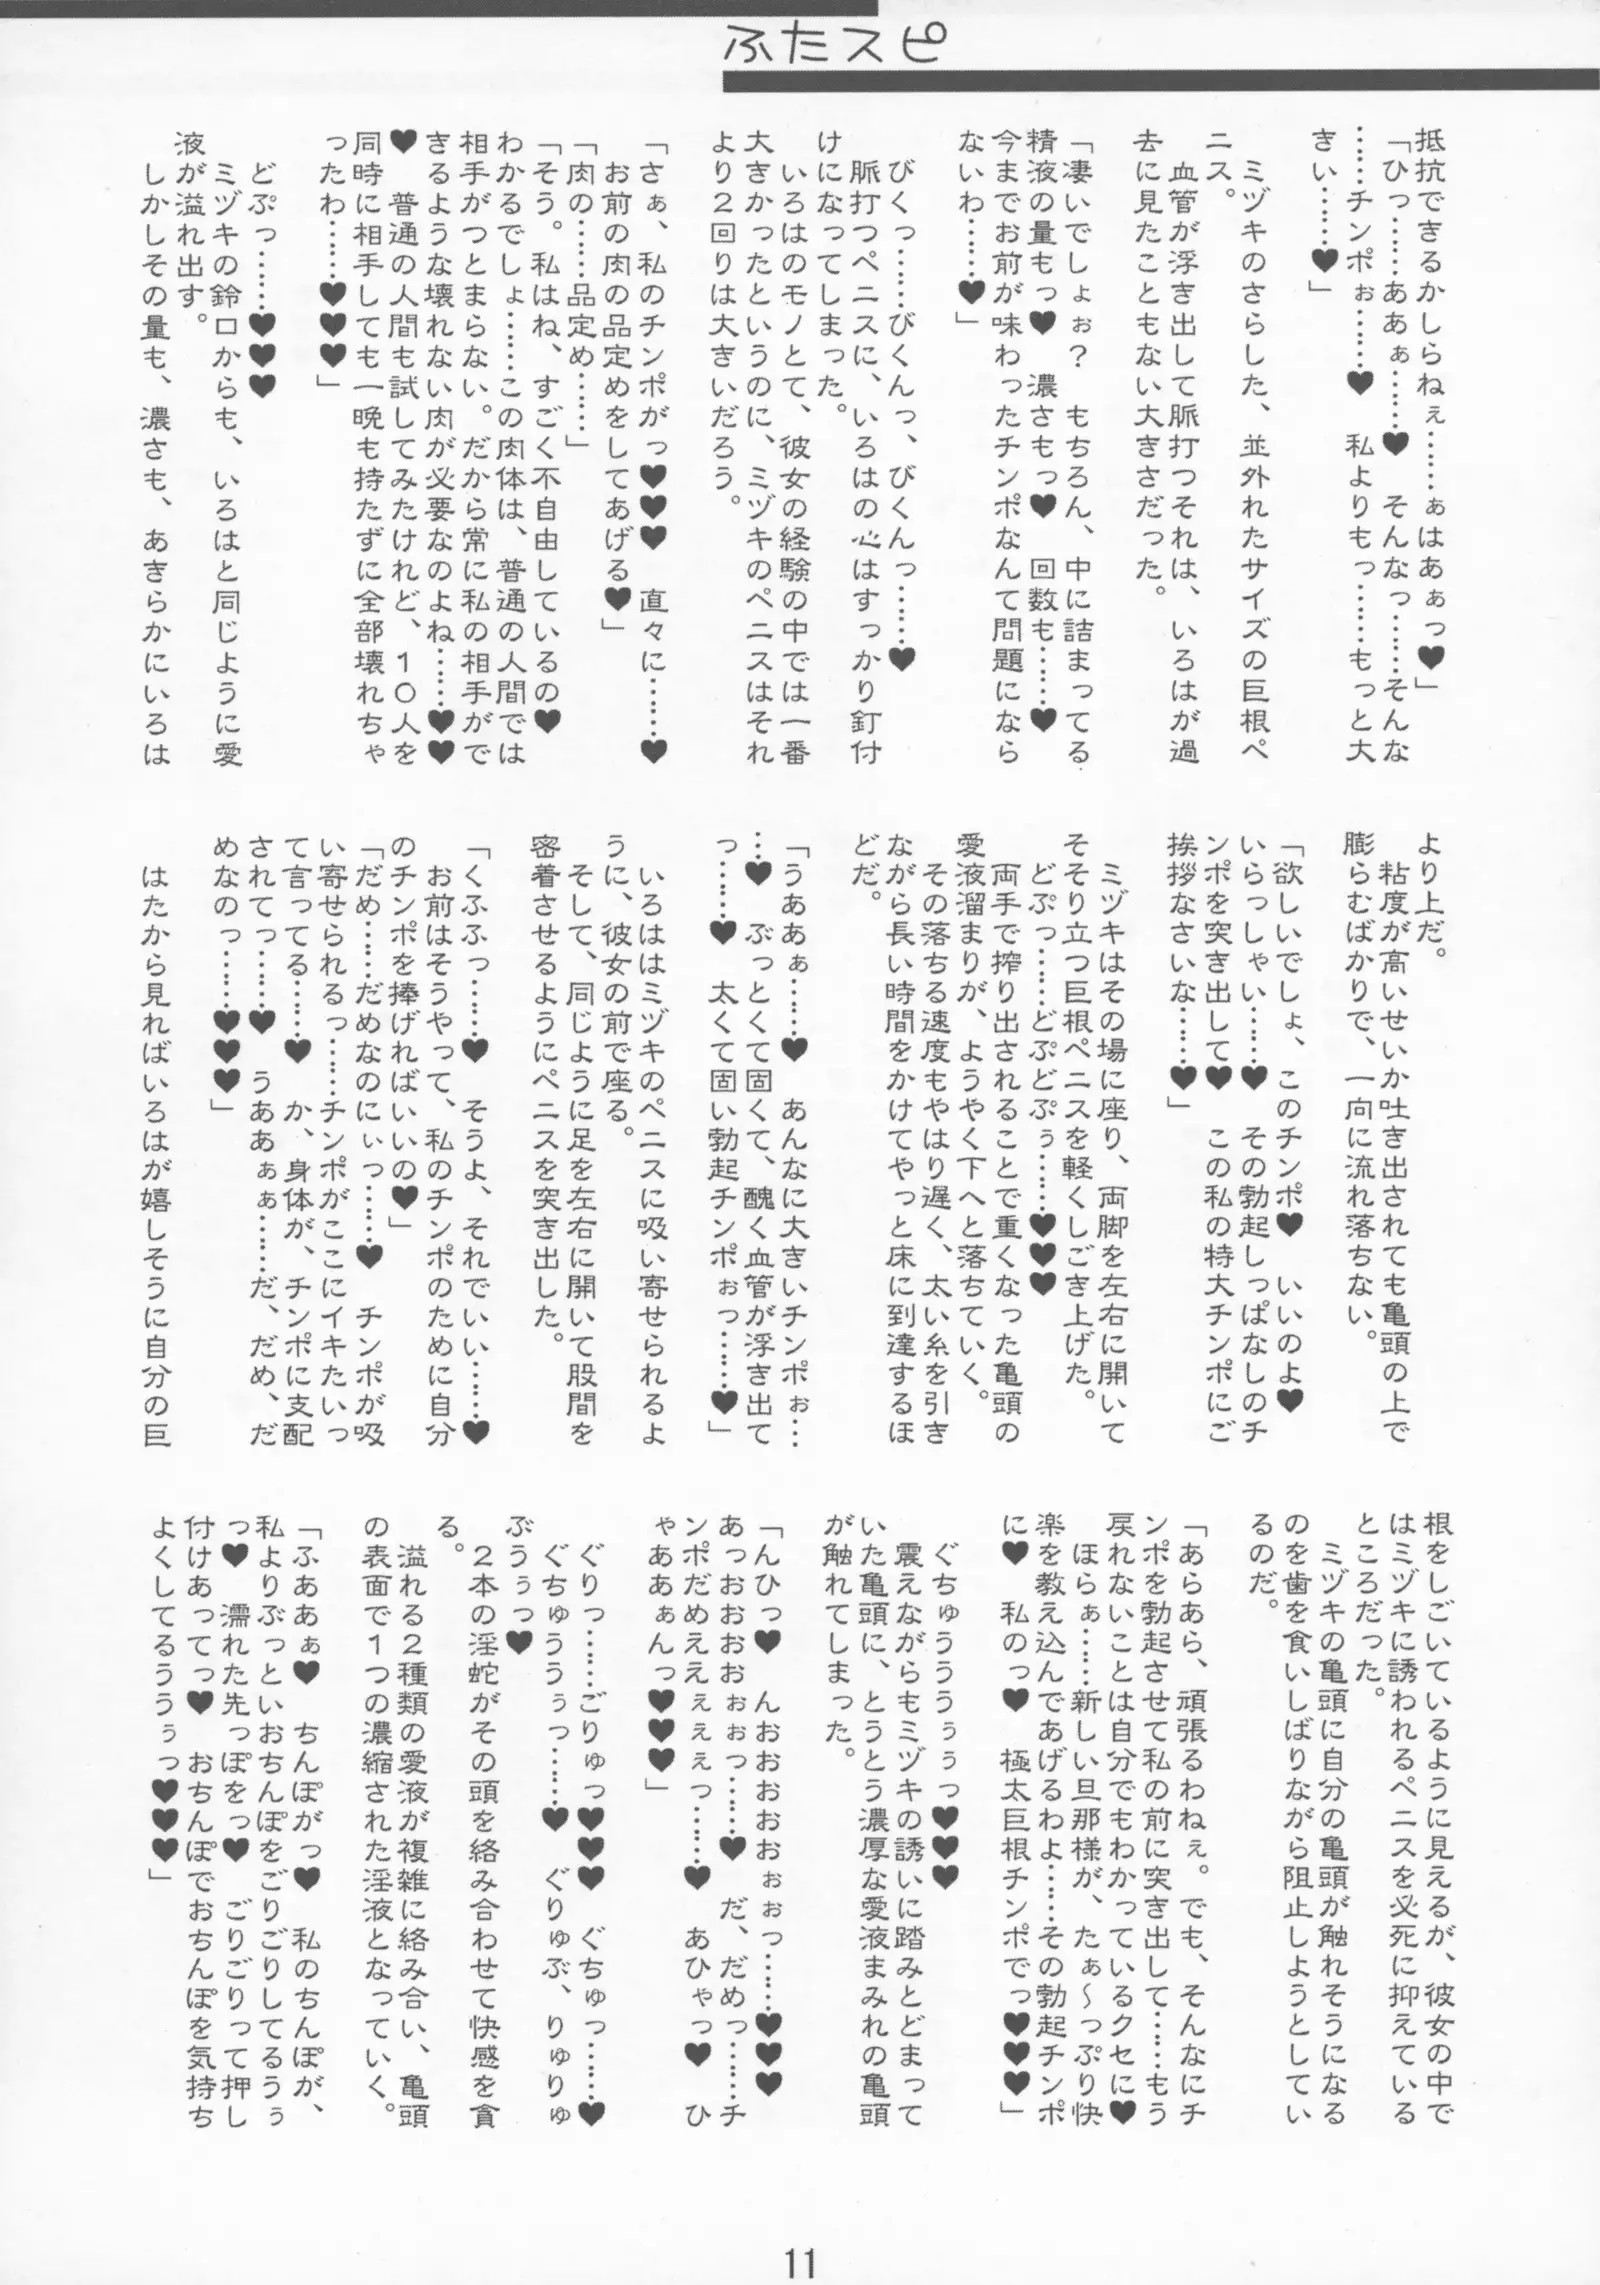 ふたスピ
抵抗できるかしらねぇ……ぁはあぁっ♥」
「ひっ……ああぁ……♥　そんなっ……そんな
……チンポぉ……♥　私よりもっ……もっと大
きい……♥」
ミヅキのさらした、並外れたサイズの巨根ペ
ニス。
血管が浮き出して脈打つそれは、いろはが過
去に見たこともない大きさだった。
「凄いでしょぉ？　もちろん、中に詰まってる
精液の量もっ♥　濃さもっ♥　回数も……♥
今までお前が味わったチンポなんて問題になら
ないわ……♥」
びくっ……びくんっ、びくんっ……♥
脈打つペニスに、いろはの心はすっかり釘付
けになってしまった。
いろはのモノとて、彼女の経験の中では一番
大きかったというのに、ミヅキのペニスはそれ
より２回りは大きいだろう。
「さぁ、私のチンポがっ♥♥♥　直々に……♥
お前の肉の品定めをしてあげる♥」
「肉の……品定め……」
「そう。私はね、すごく不自由しているの♥
わかるでしょ……この肉体は、普通の人間では
相手がつとまらない。だから常に私の相手がで
きるような壊れない肉が必要なのよね……♥♥
♥　普通の人間も試してみたけれど、１０人を
同時に相手しても一晩も持たずに全部壊れちゃ
ったわ……♥♥♥」
どぷっ……♥♥♥
ミヅキの鈴口からも、いろはと同じように愛
液が溢れ出す。
しかしその量も、濃さも、あきらかにいろは
より上だ。
粘度が高いせいか吐き出されても亀頭の上で
膨らむばかりで、一向に流れ落ちない。
「欲しいでしょ、このチンポ♥　いいのよ♥
いらっしゃい……♥　その勃起しっぱなしのチ
ンポを突き出して♥　この私の特大チンポにご
挨拶なさいな……♥」
ミヅキはその場に座り、両脚を左右に開いて
そそり立つ巨根ペニスを軽くしごき上げた。
どぷっ……どぷどぷぅ……♥♥♥
両手で搾り出されることで重くなった亀頭の
愛液溜まりが、ようやく下へと落ちていく。
その落ちる速度もやはり遅く、太い糸を引き
ながら長い時間をかけてやっと床に到達するほ
どだ。
「うああぁ……♥　あんなに大きいチンポぉ…
…♥　ぶっとくて固くて、醜く血管が浮き出て
っ……♥　太くて固い勃起チンポぉっ……♥」
いろははミヅキのペニスに吸い寄せられるよ
うに、彼女の前で座る。
そして、同じように足を左右に開いて股間を
密着させるようにペニスを突き出した。
「くふふっ……♥　そうよ、それでいい……♥
お前はそうやって、私のチンポのために自分
のチンポを捧げればいいの♥」
「だめ……だめなのにぃっ……♥　チンポが吸
い寄せられるっ……チンポがここにイキたいっ
て言ってる……♥　か、身体が、チンポに支配
されてっ……♥　うああぁぁ……だ、だめ、だ
めなのっ……♥♥♥」
はたから見ればいろはが嬉しそうに自分の巨
根をしごいているように見えるが、彼女の中で
はミヅキに誘われるペニスを必死に抑えている
ところだった。
ミヅキの亀頭に自分の亀頭が触れそうになる
のを歯を食いしばりながら阻止しようとしてい
るのだ。
「あらあら、頑張るわねぇ。でも、そんなにチ
ンポを勃起させて私の前に突き出して……もう
戻れないことは自分でもわかっているクセに♥
ほらぁ……新しい旦那様が、たぁ～っぷり快
楽を教え込んであげるわよ……その勃起チンポ
に♥　私のっ♥　極太巨根チンポでっ♥♥♥」
ぐちゅうううぅぅっ♥♥♥
震えながらもミヅキの誘いに踏みとどまって
いた亀頭に、とうとう濃厚な愛液まみれの亀頭
が触れてしまった。
「んひっ♥　んおおおおおぉぉっ……♥♥♥
あっおおおおぉぉっ……♥　だ、だめっ……チ
ンポだめええぇぇぇっ……♥　あひゃっ♥　ひ
ゃああぁんっ♥♥♥」
ぐりっ……ごりゅっ♥♥♥　ぐちゅっ……♥
ぐちゅううぅっ……♥　ぐりゅぶ、りゅりゅ
ぶうぅっ♥
２本の淫蛇がその頭を絡み合わせて快感を貪
る。
溢れる２種類の愛液が複雑に絡み合い、亀頭
の表面で１つの濃縮された淫液となっていく。
「ふああぁ♥　ちんぽがっ♥　私のちんぽが、
私よりぶっといおちんぽをごりごりしてるうぅ
っ♥　濡れた先っぽをっ♥　ごりごりって押し
付けあってっ♥　おちんぽでおちんぽを気持ち
よくしてるううぅっ♥♥♥」
11